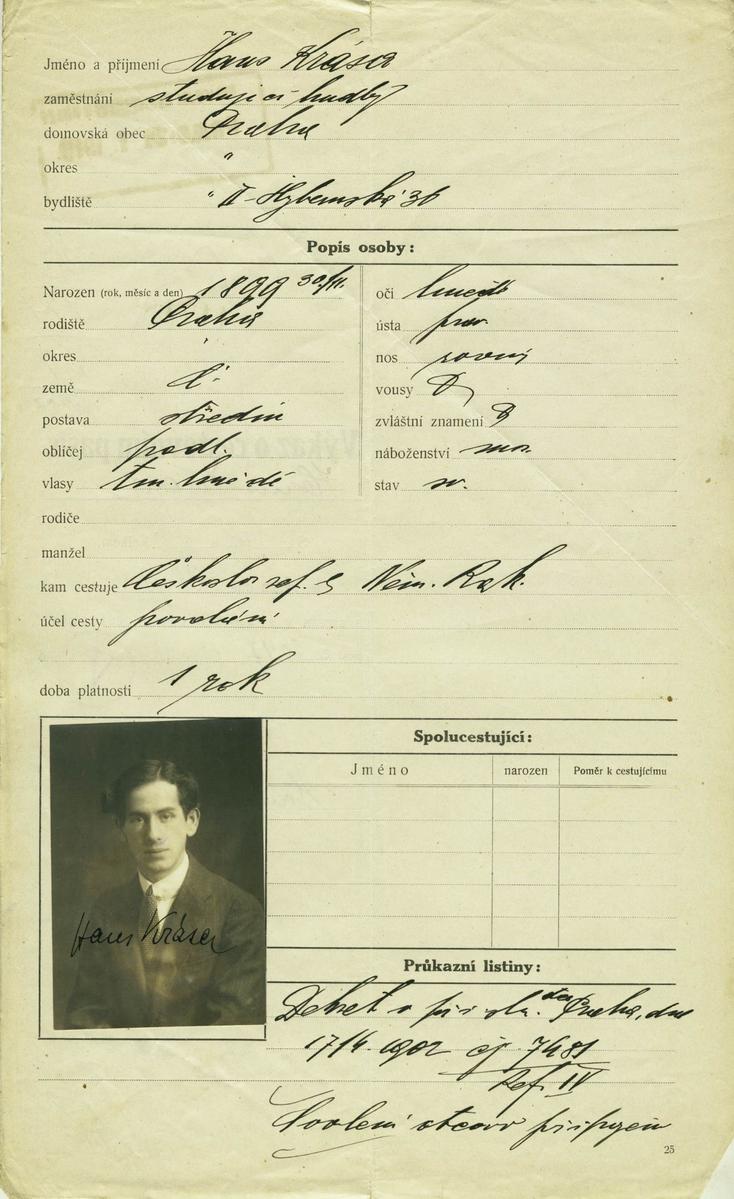 Jméno a příjmení Hans Krása
zaměstnání studující hudby
domovská obec Praha
okres "
bydliště " II - Hybernská 36
Popis osoby:
Narozen (rok, měsíc a den) 1899 30/11.
rodiště Praha
okres "
země Č.
postava střední
obličej podl.
vlasy tm. hnědé
oči hnědé
ústa prav.
nos rovný
vousy
zvláštní znamení
náboženství mos.
stav sv.
rodiče
manžel
kam cestuje Českoslov. Něm. Rak.
účel cesty povolání
doba platnosti 1 rok
Spolucestující:
Jméno narozen Poměr k cestujícímu
Hans Krása
Průkazní listiny:
Dekret o Praha, dne
čj. 7481
Ref. IV
Svolení otcovo připojeno
25